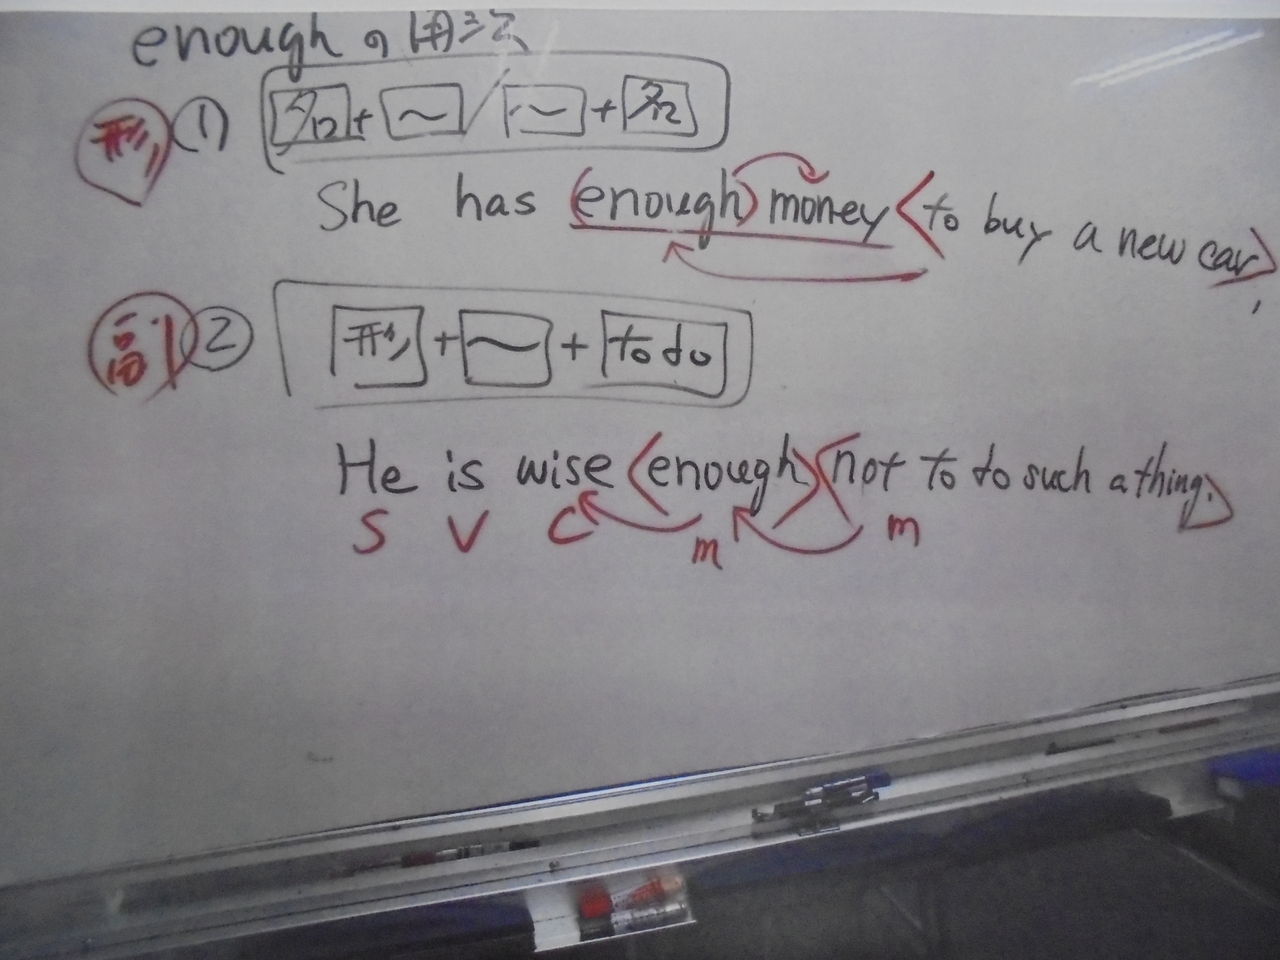 enough の使え
形 ① 名+~/~+名
She has (enough) money <to buy a new car>.
副 ② 形+~+to do
He is wise <enough> <not to do such a thing.>
S V C m m